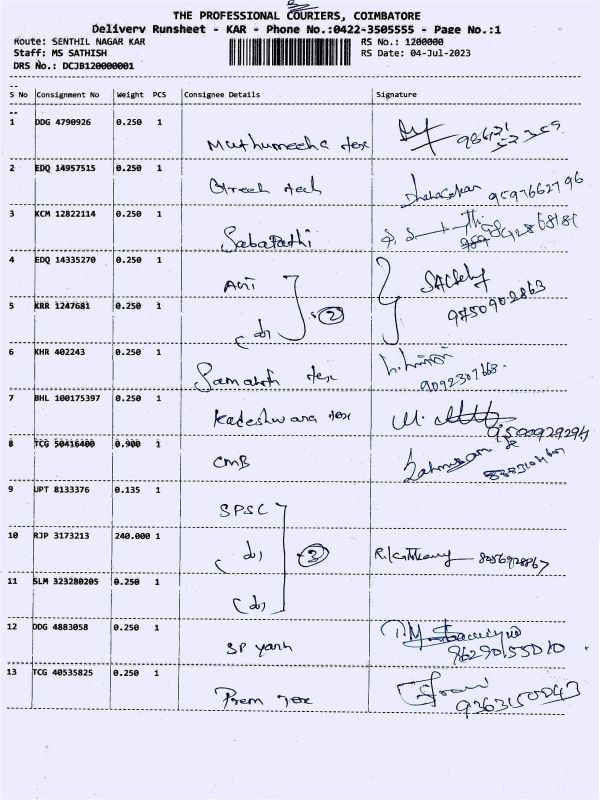 THE PROFESSIONAL COURIERS, COIMBATORE
Delivery Runsheet - KAR - Phone No.:0422-3505555 - Page No.:1
Route: SENTHIL NAGAR KAR RS No.: 1200000
Staff: MS SATHISH RS Date: 04-Jul-2023
DRS No.: DCJB120000001
S No Consignment No Weight PCS Consignee Details Signature
1 DDG 4790926 0.250 1
2 EDQ 14957515 0.250 1
tech 9597662796
3 KCM 12822114 0.250 1
Sabapathi
4 EDQ 14335270 0.250 1
9750902863
5 KRR 1247681 0.250 1
(do) 2
6 KHR 402243 0.250 1
tex 9092307668
7 BHL 100175397 0.250 1
tex
8 TCG 50416400 0.900 1
CMB
9 UPT 8133376 0.135 1
SPSC
10 RJP 3173213 240.000 1
(do) 3 8056928867
11 SLM 323280205 0.250 1
(do)
12 DDG 4883058 0.250 1
SP yarn 9629015500
13 TCG 40535825 0.250 1
Prem tex 9363150043